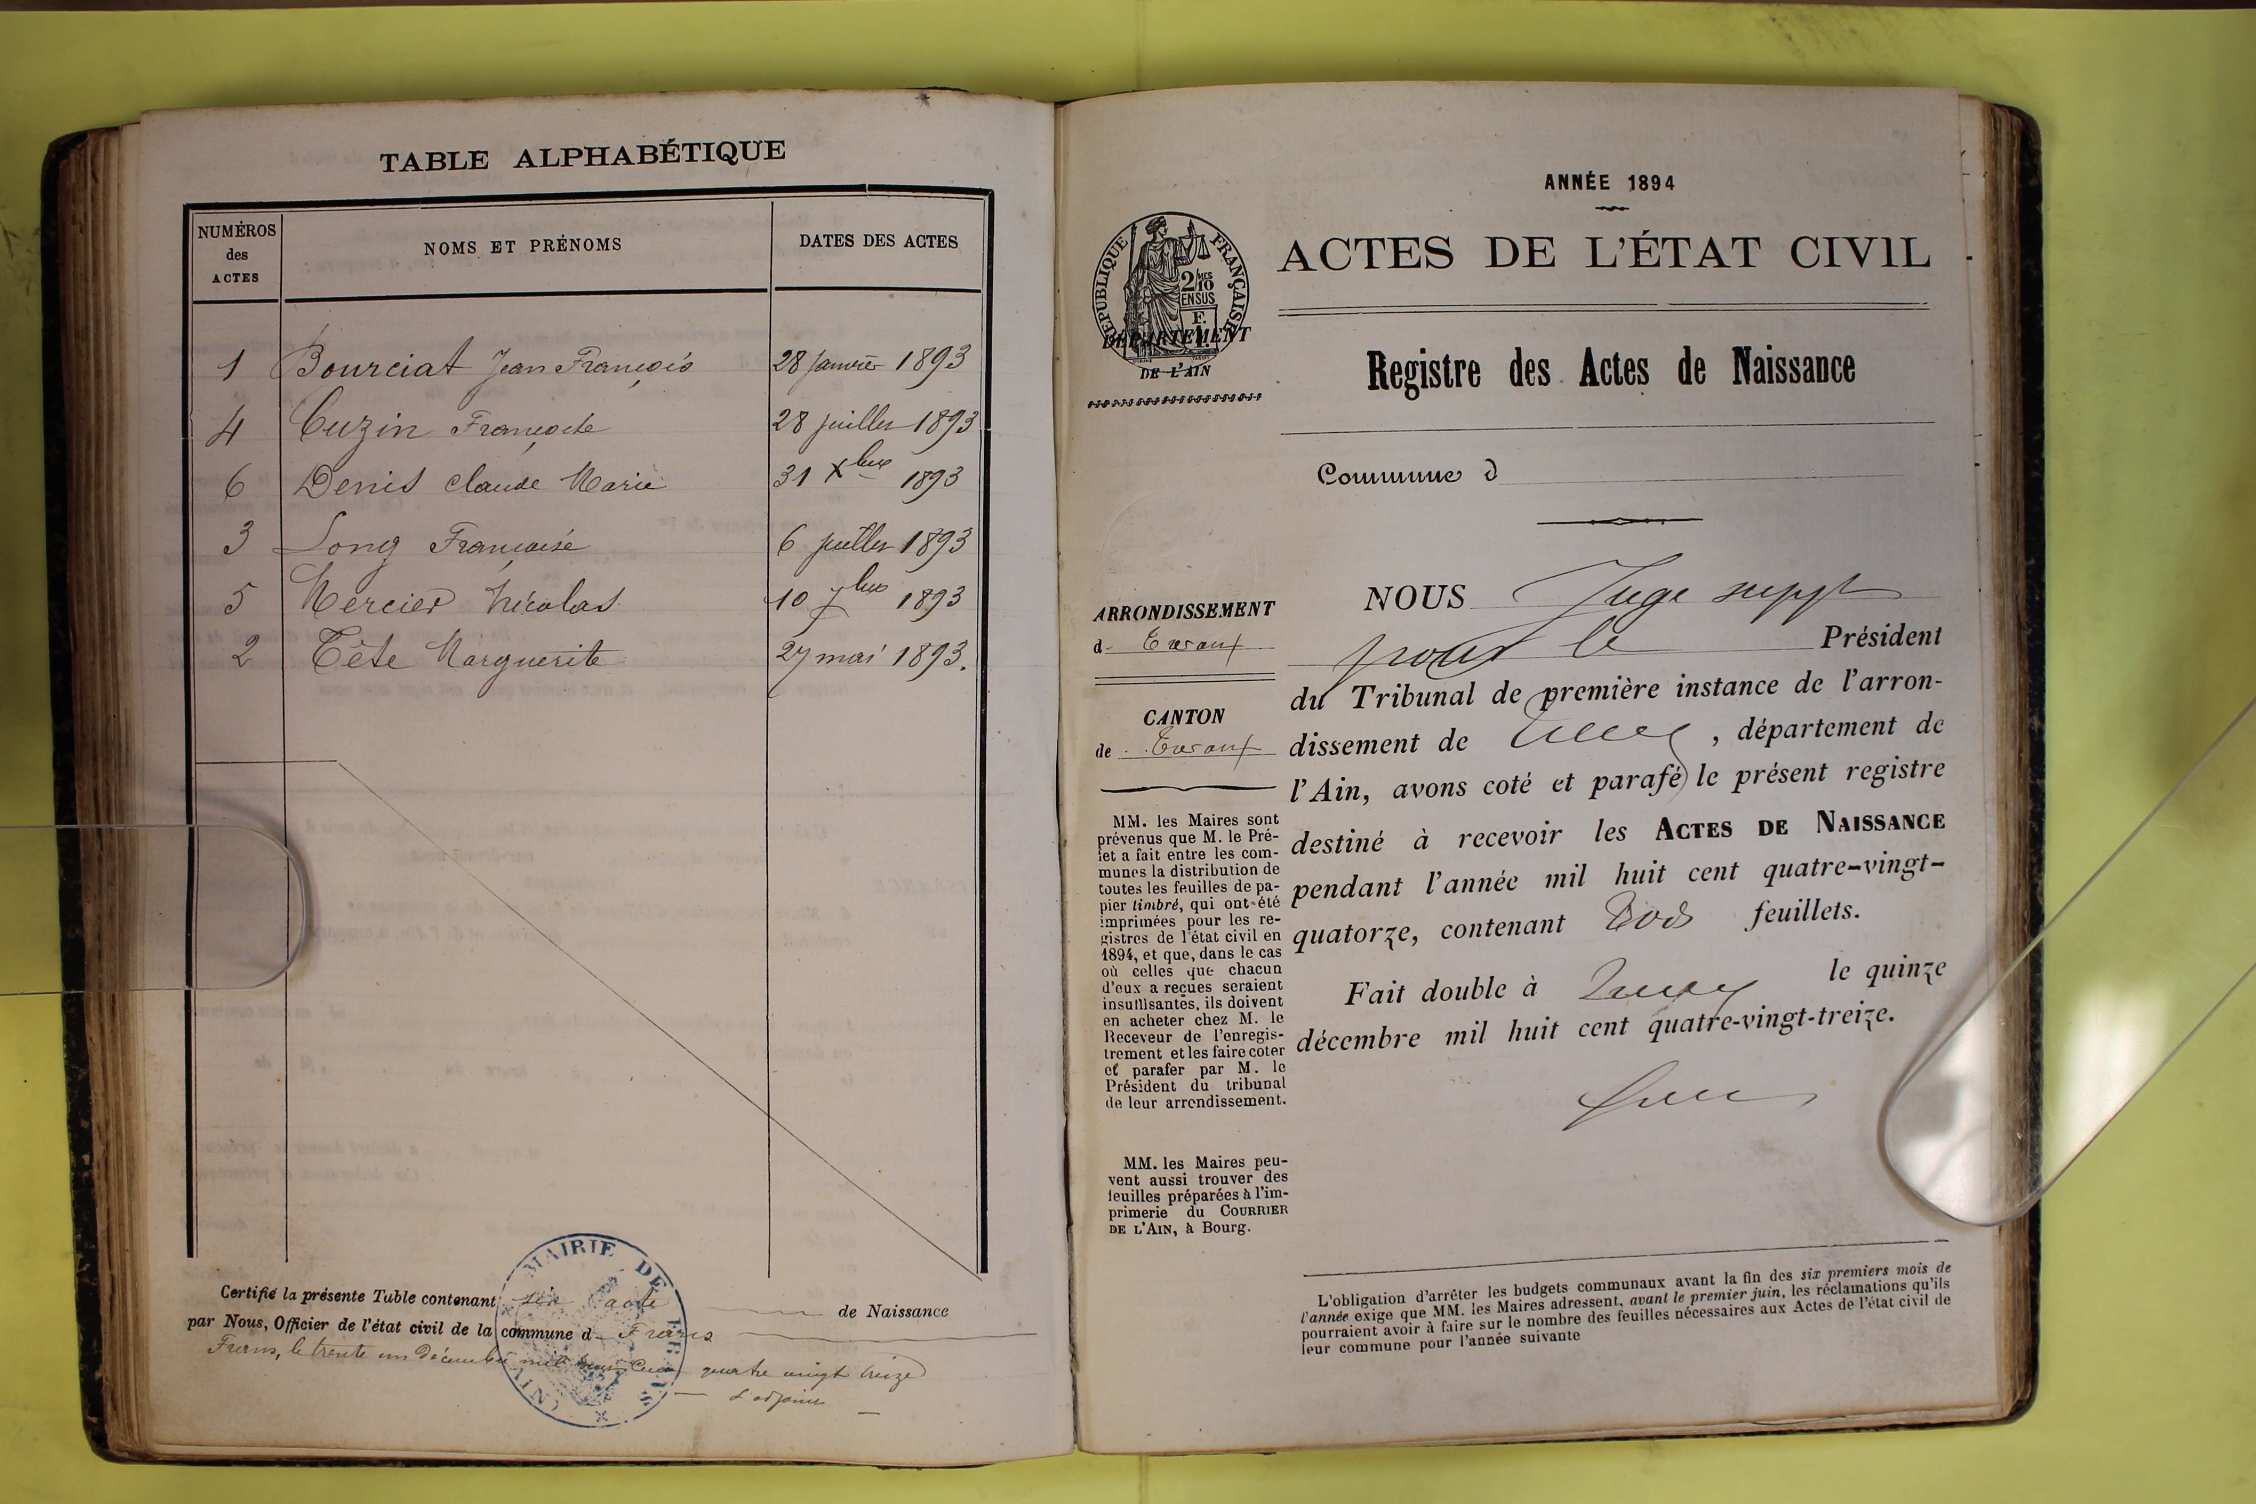 TABLE ALPHABÉTIQUE
NUMÉROS des ACTES NOMS ET PRÉNOMS DATES DES ACTES
1 Bourciat Jean François 28 Janvier 1893
4 Cuzin Françoise 28 juillet 1893
6 Denis Claude Marie 31 Xbre 1893
3 Long Françoise 6 juillet 1893
5 Mercier Nicolas 10 7bre 1893
2 Tête Marguerite 27 mai 1893.
Certifié la présente Table contenant six acte de Naissance
par Nous, Officier de l'état civil de la commune d Frans
Frans, le trente un Décembre mil huit Cent quatre vingt treize
L'adjoint
MAIRIE DE FRANS
(AIN)
ANNÉE 1894
RÉPUBLIQUE FRANÇAISE
2/10 EN SUS
DÉPARTEMENT
DE L'AIN
ACTES DE L'ÉTAT CIVIL
Registre des Actes de Naissance
Commune d
ARRONDISSEMENT
d Trévoux
CANTON
de Trévoux
MM. les Maires sont
prévenus que M. le Pré-
fet a fait entre les com-
munes la distribution de
toutes les feuilles de pa-
pier timbré, qui ont été
imprimées pour les re-
gistres de l'état civil en
1894, et que, dans le cas
où celles que chacun
d'eux a reçues seraient
insuffisantes, ils doivent
en acheter chez M. le
Receveur de l'enregis-
trement et les faire coter
et parafer par M. le
Président du tribunal
de leur arrondissement.
MM. les Maires peu-
vent aussi trouver des
feuilles préparées à l'im-
primerie du COURRIER
DE L'AIN, à Bourg.
NOUS Juge suppt
pour le Président
du Tribunal de première instance de l'arron-
dissement de , département de
l'Ain, avons coté et parafé le présent registre
destiné à recevoir les ACTES DE NAISSANCE
pendant l'année mil huit cent quatre-vingt-
quatorze, contenant Trois feuillets.
Fait double à le quinze
décembre mil huit cent quatre-vingt-treize.
L'obligation d'arrêter les budgets communaux avant la fin des six premiers mois de
l'année exige que MM. les Maires adressent, avant le premier juin, les réclamations qu'ils
pourraient avoir à faire sur le nombre des feuilles nécessaires aux Actes de l'état civil de
leur commune pour l'année suivante